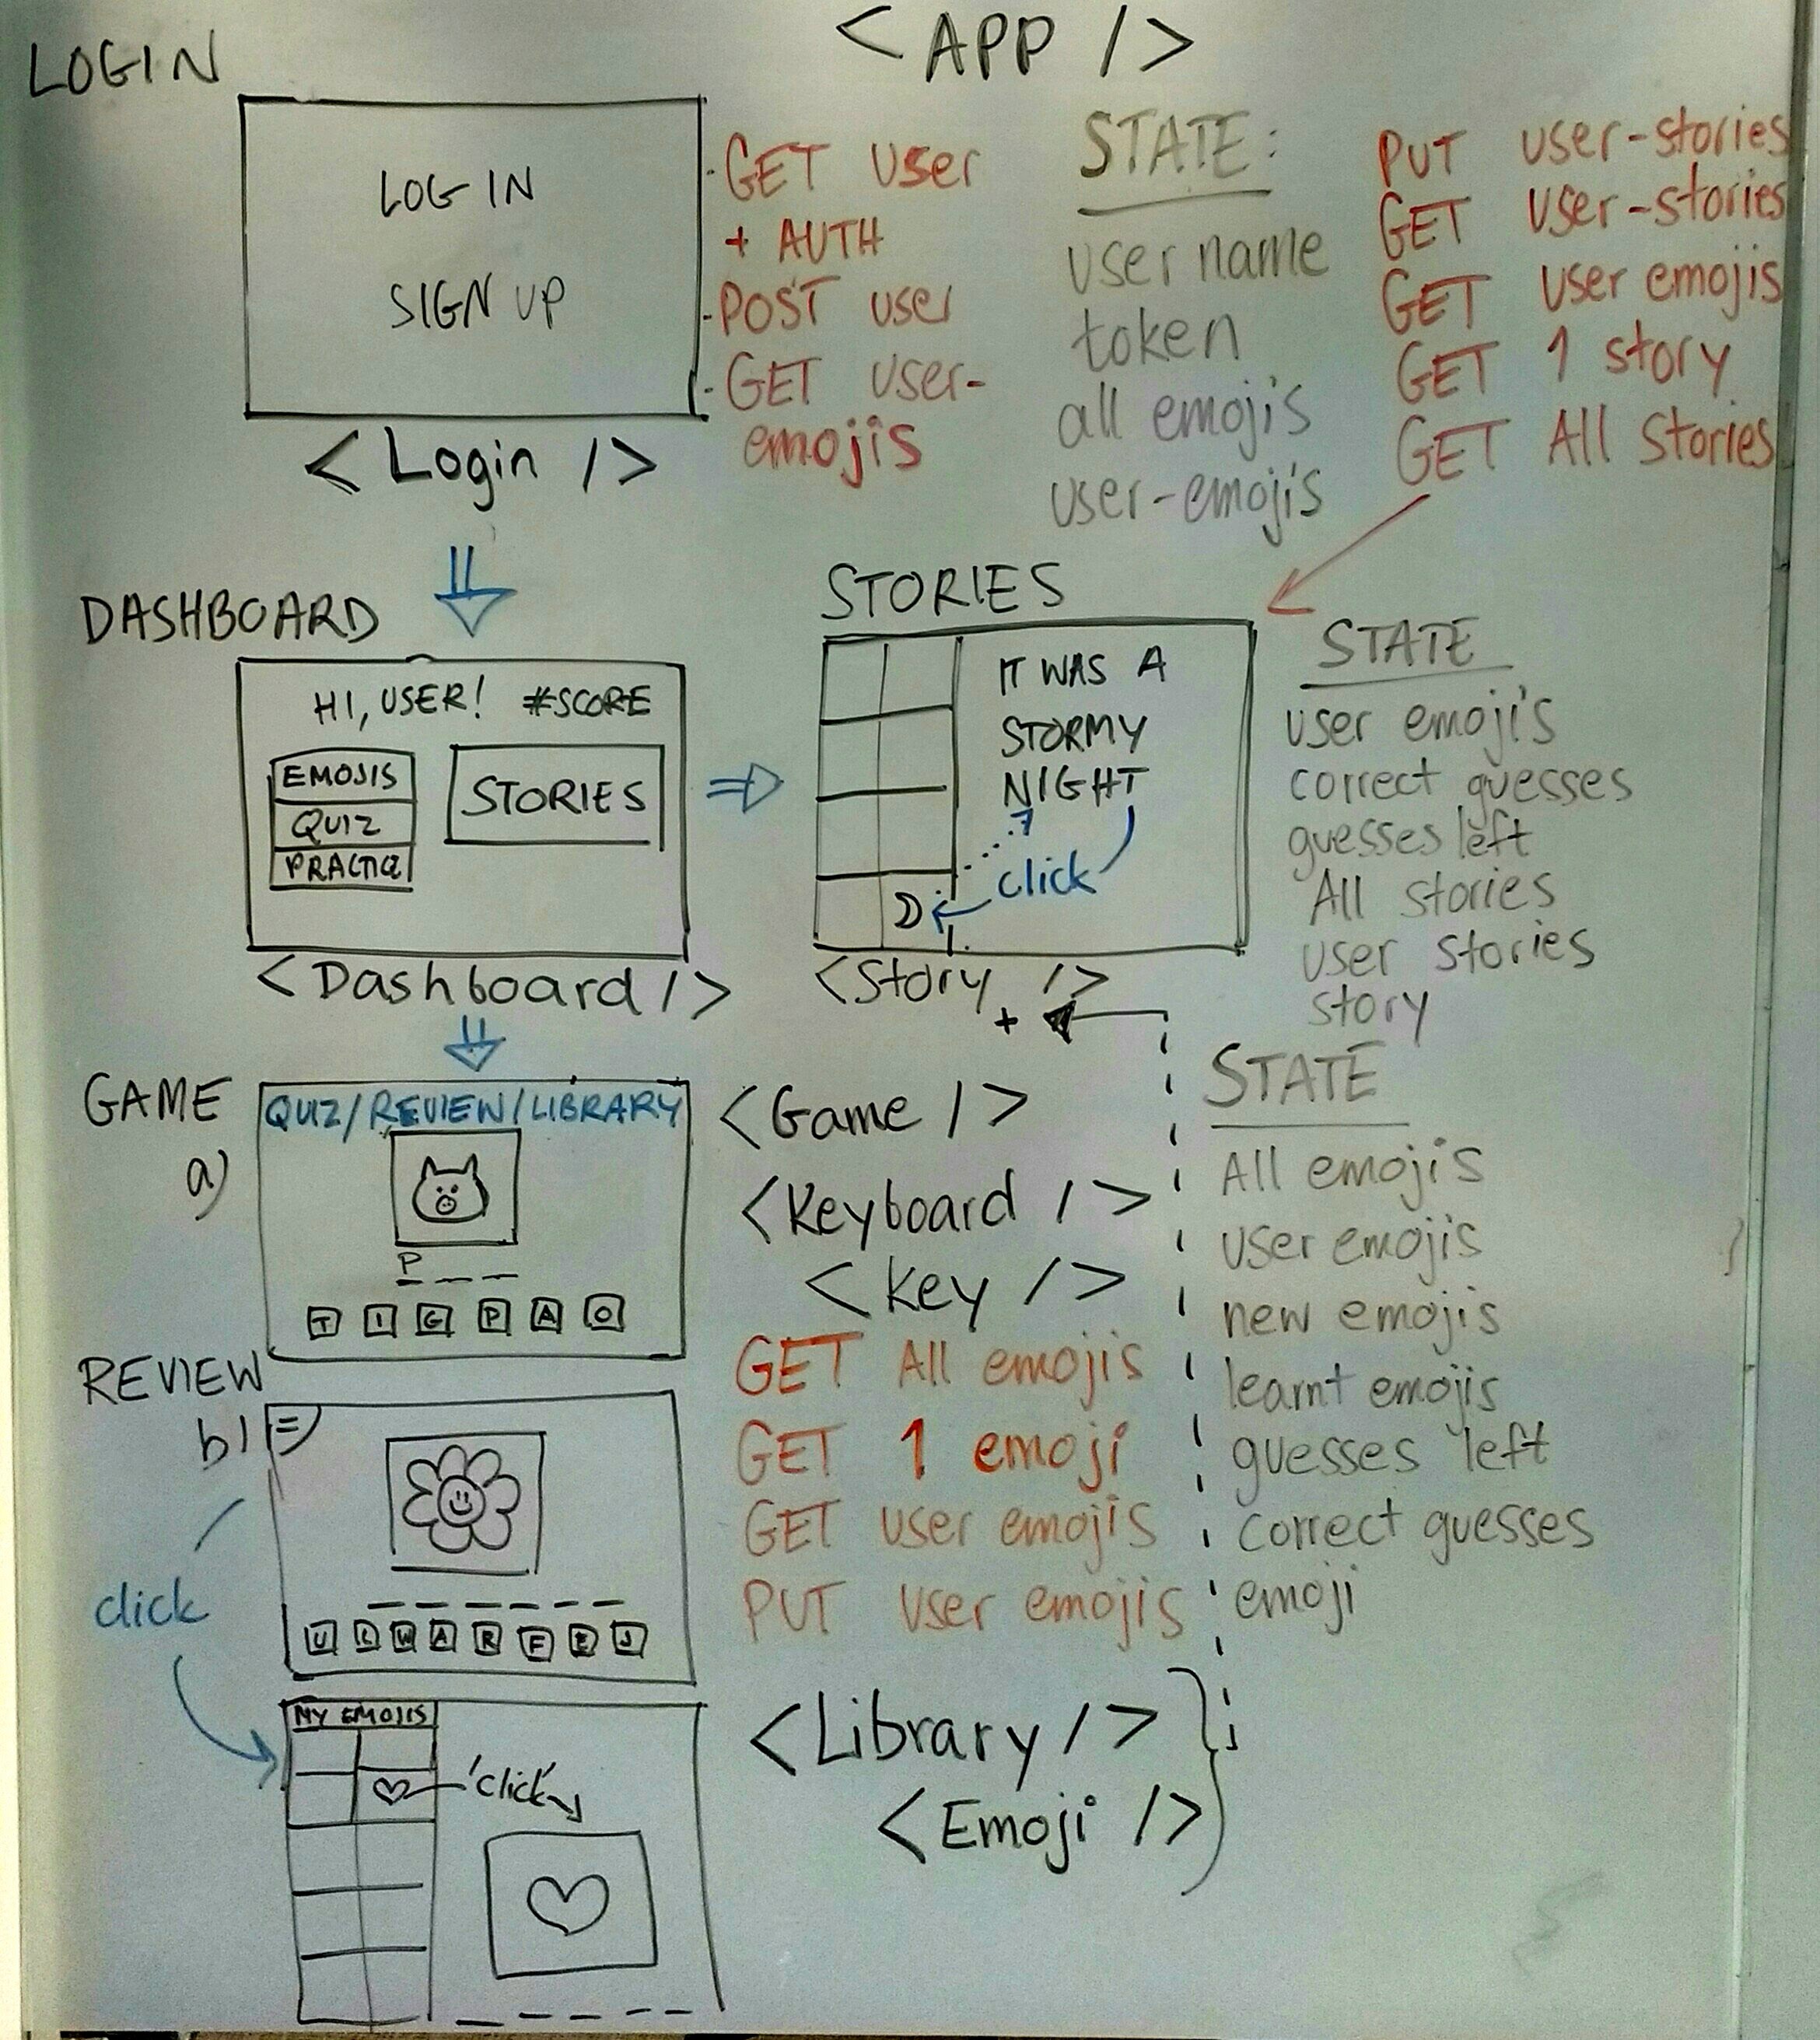 < APP />
LOGIN
LOG IN
SIGN UP
< Login />
- GET user
+ AUTH
- POST user
- GET user-
emojis
STATE:
user name
token
all emoji's
user-emoji's
PUT user-stories
GET user-stories
GET user emojis
GET 1 story
GET All stories
DASHBOARD
HI, USER! #SCORE
EMOJIS
QUIZ
PRACTICE
STORIES
< Dashboard />
STORIES
IT WAS A
STORMY
NIGHT
click
<Story />
+
STATE
user emoji's
correct guesses
guesses left
All stories
user stories
story
GAME
a)
QUIZ/REVIEW/LIBRARY
P _ _ _
T I G P A O
<Game />
<Keyboard />
<Key />
GET All emojis
GET 1 emoji
GET user emojis
PUT user emojis
STATE
All emojis
user emojis
new emojis
learnt emojis
guesses left
correct guesses
emoji
REVIEW
b)
U L W A R F E J
click
MY EMOJIS
'click'
<Library />
<Emoji />